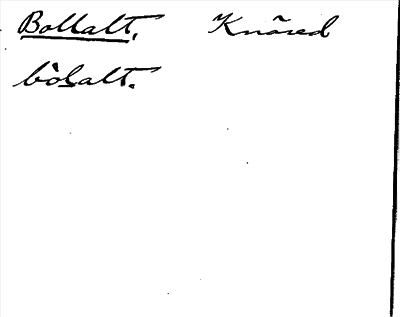 Bollalt. Knäred
bòlalt.